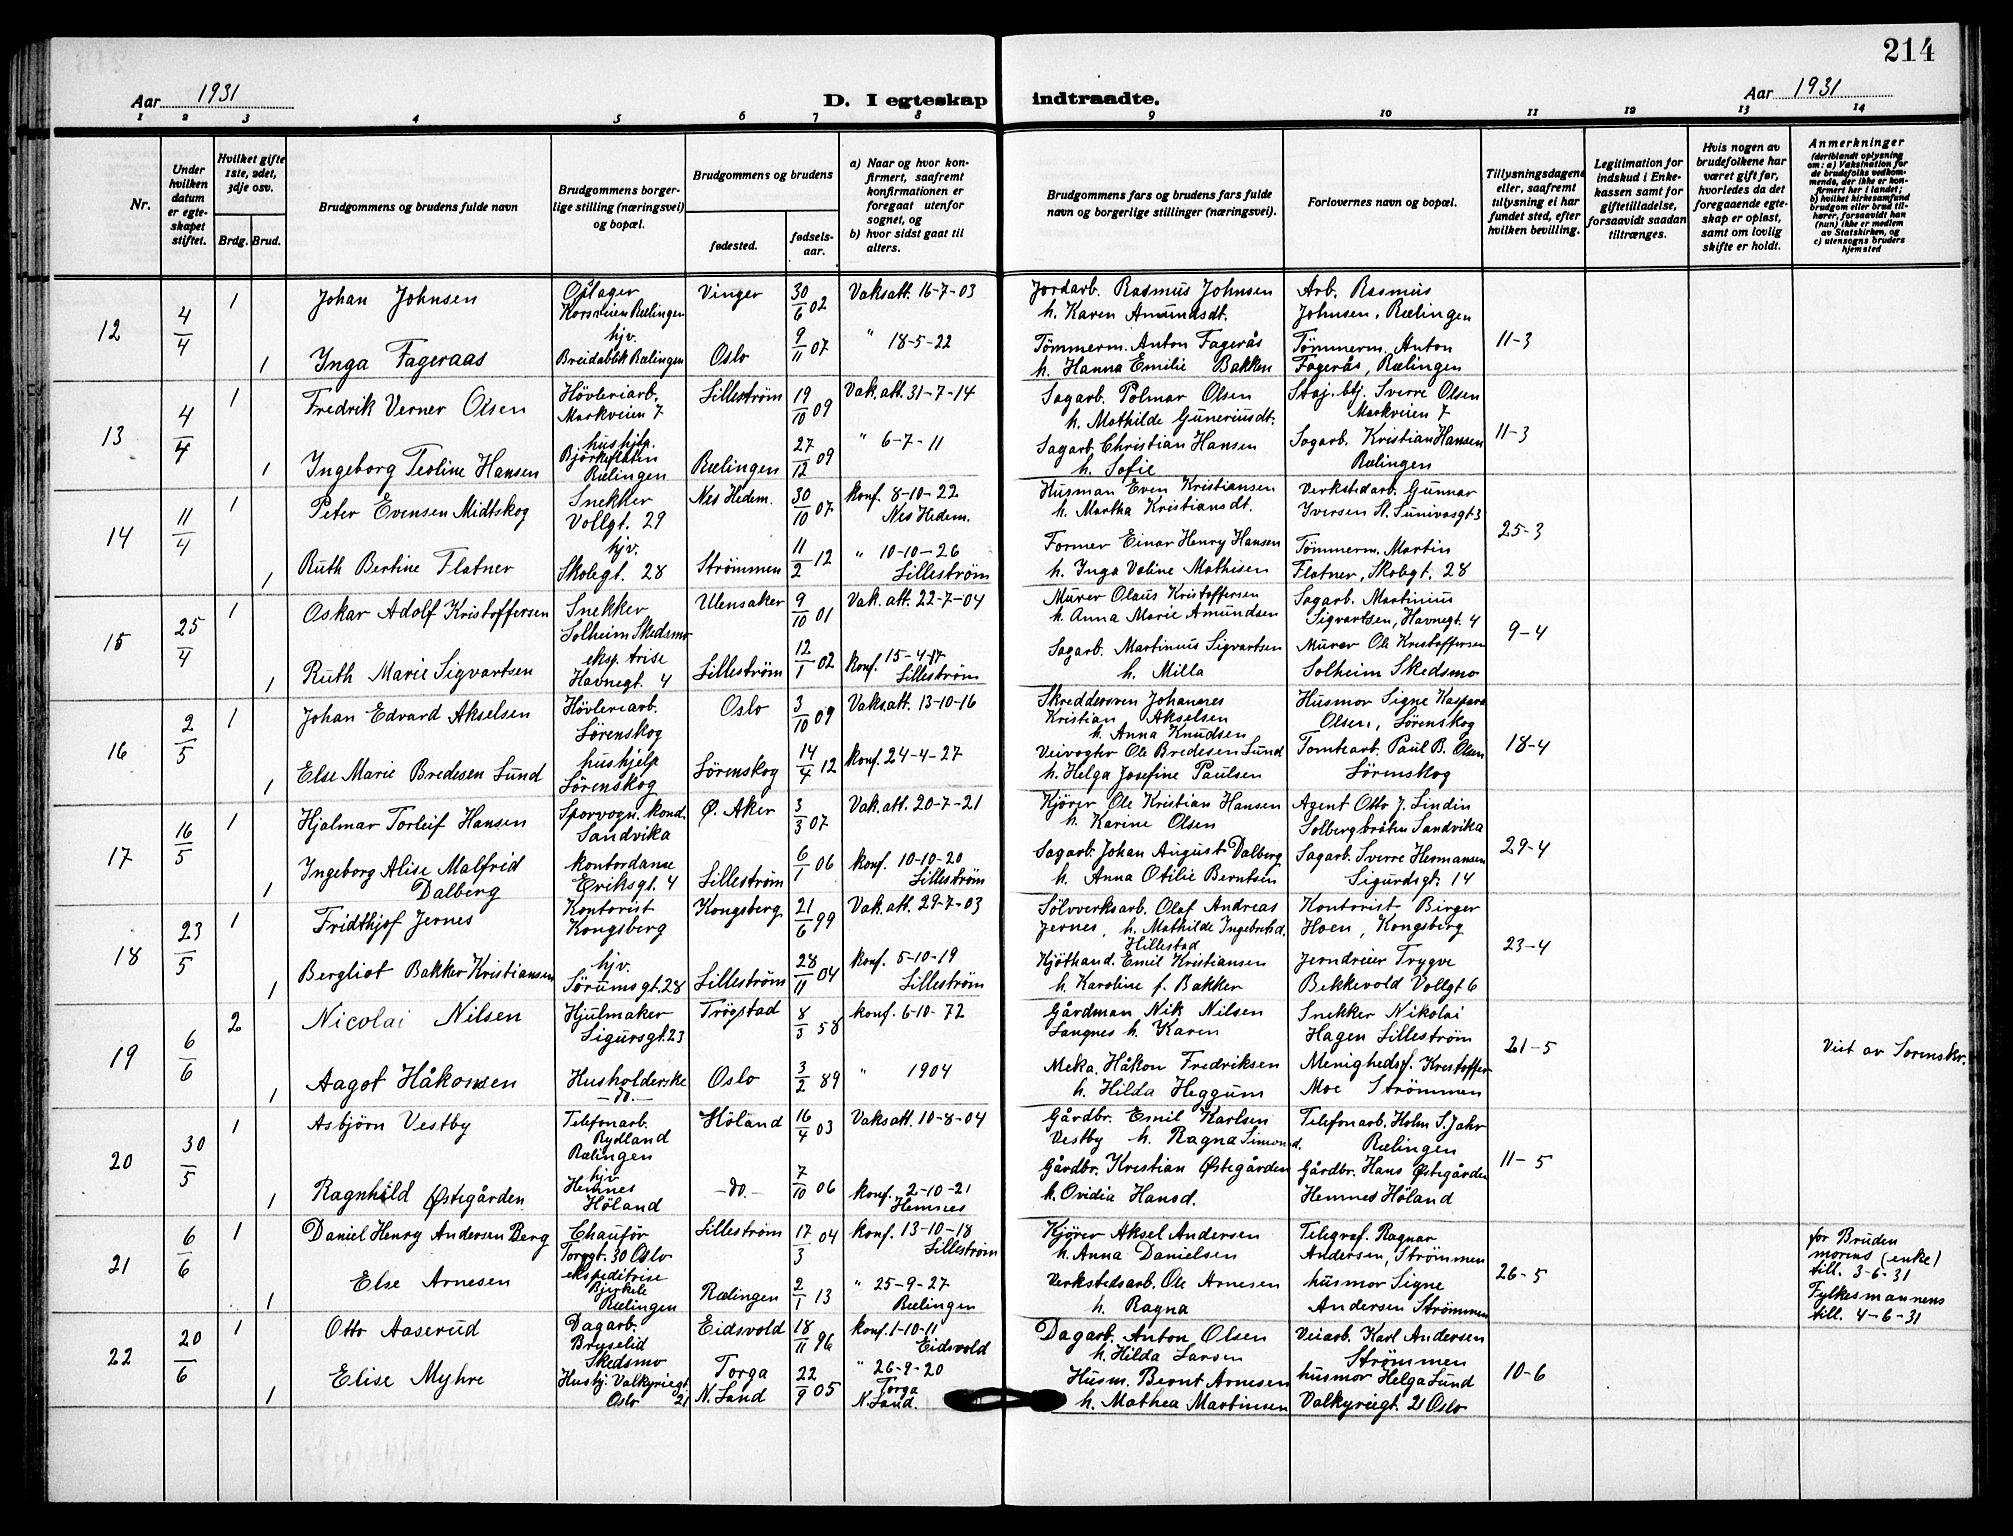 214
Aar 1931
D. I egteskap indtraadte.
Aar 1931
1 2 3 4 5 6 7 8 9 10 11 12 13 14
Nr.
Under hvilken datum er egteskapet stiftet.
Hvilket gifte 1ste, 2det, 3dje osv.
Brdg. Brud.
Brudgommens og brudens fulde navn
Brudgommens borgerlige stilling (næringsvei) og bopæl.
Brudgommens og brudens
fødested.
fødselsaar.
a) Naar og hvor konfirmert, saafremt konfirmationen er foregaat utenfor sognet, og
b) hvor sidst gaat til alters.
Brudgommens fars og brudens fars fulde navn og borgerlige stillinger (næringsvei).
Forlovernes navn og bopæl.
Tillysningsdagene eller, saafremt tillysning ei har fundet sted, efter hvilken bevilling.
Legitimation for indskud i Enkekassen samt for giftetilladelse, forsaavidt saadan tiltrænges.
Hvis nogen av brudefolkene har været gift før, hvorledes da det foregaaende egteskap er opløst, samt om lovlig skifte er holdt.
Anmerkninger
(deriblandt oplysning om: a) Vaksination for de brudefolks vedkommende, der ikke er konfirmert her i landet; b) hvilket kirkesamfund brudgom eller brud tilhører, forsaavidt han (hun) ikke er medlem av Statskirken, og c) utensogns bruders hjemsted
12 4/4 1 Johan Johnsen Oplager Korsveien Rælingen Vinger 30/6 02 Vaksatt. 16-7-03 Jordarb. Rasmus Johnsen h. Karen Amundsdt. Arb. Rasmus Johnsen, Rælingen 11-3
1 Inga Fageraas hjv. Breidablik Rælingen Oslo 9/11 07 " 18-5-22 Tømmerm. Anton Fagerås h. Hanna Emilie Bakken Tømmerm. Anton Fagerås, Rælingen
13 4/4 1 Fredrik Verner Olsen Høvleriarb. Markveien 7 Lillestrøm 19/10 09 Vak. att. 31-7-14 Sagarb. Polmar Olsen h. Mathilde Guneriusdt. Staj. btj. Sverre Olsen Markveien 7 11-3
1 Ingeborg Teoline Hansen hushjlp. Rælingen Rælingen 27/12 09 " 6-7-11 Sagarb. Christian Hansen h. Sofie Sagarb. Kristian Hansen Rælingen
14 11/4 1 Peter Evensen Midtskog Snekker Vollgt. 29 Nes Hedem. 30/10 07 konf. 8-10-22 Nes Hedem. Husman Even Kristiansen h. Martha Kristiansdt. Verkstedarb. Gunnar Iversen St. Sunivasgt 3 25-3
1 Ruth Bertine Flatner hjv. Skolegt. 28 Strømmen 11/2 12 " 10-10-26 Lillestrøm Former Einar Henry Hansen h. Inga Valine Mathisen Tømmerm. Martin Flatner, Skolegt. 28
15 25/4 1 Oskar Adolf Kristoffersen Snekker Solheim Skedsmo Ulensaker 9/10 01 Vak. att. 22-7-04 Murer Olaus Kristoffersen h. Anna Marie Amundsen Sagarb. Martinius Sigvartsen, Havnegt. 4 9-4
1 Ruth Marie Sigvartsen eksp. trise Havnegt. 4 Lillestrøm 12/1 02 konf. 15-4-17 Lillestrøm Sagarb. Martinius Sigvartsen h. Milla Murer Ole Kristoffersen Solheim Skedsmo
16 2/5 1 Johan Edvard Akselsen Høvleriarb. Lørenskog Oslo 3/10 09 Vaksatt. 13-10-16 Skreddersven Johannes Kristian Akselsen h. Anna Knudsen Husmor Signe Kaspara Olsen, Lørenskog 18-4
1 Else Marie Bredesen Lund hushjelp Lørenskog Lørenskog 14/4 12 konf. 24-4-27 Veivogter Ole Bredesen Lund h. Helga Josefine Paulsen Tomtearb. Paul B. Olsen Lørenskog
17 16/5 1 Hjalmar Torleif Hansen Sporvogn. kond. Sandvika Ø. Aker 3/3 07 Vak. att. 20-7-21 Kjører Ole Kristian Hansen h. Karine Olsen Agent Otto J. Lindin Solbergbråten Sandvika 29-4
1 Ingeborg Alise Malfrid Dalberg kontordame Eriksgt. 4 Lillestrøm 6/1 06 konf. 10-10-20 Lillestrøm Sagarb. Johan August Dalberg h. Anna Otilie Berntsen Sagarb. Sverre Hermansen Sigurdsgt. 14
18 23/5 1 Fridthjof Jernes Kontorist Kongsberg Kongsberg 21/6 99 Vak. att. 29-7-03 Sølvverksarb. Olaf Andreas Jernes, h. Mathilde Ingebretsd. Hillestad Kontorist Birger Hoen, Kongsberg 23-4
1 Bergliot Bakker Kristiansen hjv. Sørumsgt. 28 Lillestrøm 28/11 04 konf. 5-10-19 Lillestrøm Kjøthand. Emil Kristiansen h. Karoline f. Bakker Jerndreier Trygve Bekkevold Vollgt 6
19 6/6 2 Nicolai Nilsen Hjulmaker Sigursgt. 23 Trøgstad 8/3 58 konf. 6-10-72 Gårdman Nik Nilsen Langnes h. Karen Snekker Nikolai Hagen Lillestrøm 21-5 Viet av Sorenskr.
1 Aagot Håkonsen Husholderske -do.- Oslo 3/2 89 " 1904 Meka. Håkon Fredriksen h. Hilda Heggum Menighedsf. Kristoffer Moe Strømmen
20 30/5 1 Asbjørn Vestby Telefonarb. Rydland Rælingen Høland 16/4 03 Vaksatt. 10-8-04 Gårdbr. Emil Karlsen Vestby h. Ragna Simonsd. Telefonarb. Holm S. Jahr Rælingen 11-5
1 Ragnhild Østegården hjv Hemnes Høland -do.- 7/10 06 konf. 2-10-21 Hemnes Gårdbr. Kristian Østegården h. Ovidia Hansd. Gårdbr. Hans Østegården Hemnes Høland
21 6/6 1 Daniel Henry Andersen Berg Chaufør Torggt. 30 Oslo Lillestrøm 17/3 04 konf. 13-10-18 Lillestrøm Kjører Aksel Andersen h. Anna Danielsen Telegraf. Ragnar Andersen, Strømmen 26-5 for Bruden morens (enke) till. 3-6-31 Fylkesmannens till. 4-6-31
1 Else Arnesen ekspeditrise Bjerkely Rælingen Rælingen 2/1 13 " 25-9-27 Rælingen Verkstedsarb. Ole Arnesen h. Ragna husmor Signe Andersen Strømmen
22 20/6 1 Otto Aaserud Dagarb. Bruselid Skedsmo Eidsvold 18/11 96 konf. 1-10-11 Eidsvold Dagarb. Anton Olsen h. Hilda Larsen Veiarb. Karl Andersen Strømmen 10-6
1 Elise Myhre Hustj. Valkyriegt 21 Oslo Torga N. Land 22/9 05 " 26-9-20 Torga N. Land. Husm. Bernt Arnesen h. Mathea Martinsen husmor Helga Lund Valkyriegt. 21 Oslo